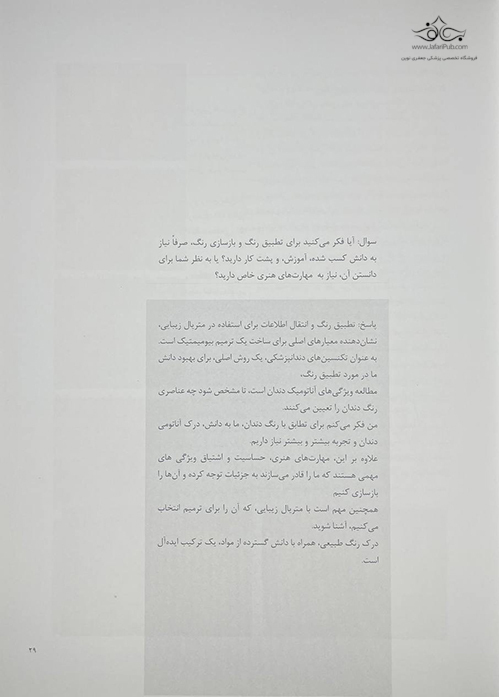 www.JafariPub.com
فروشگاه تخصصی پزشکی جعفری نوین
سوال: آیا فکر می‌کنید برای تطبیق رنگ و بازسازی رنگ، صرفاً نیاز
به دانش کسب شده، آموزش، و پشت کار دارید؟ یا به نظر شما برای
دانستن آن، نیاز به مهارت‌های هنری خاص دارید؟
پاسخ: تطبیق رنگ و انتقال اطلاعات برای استفاده در متریال زیبایی،
نشان‌دهنده معیارهای اصلی برای ساخت یک ترمیم بیومیمتیک است.
به عنوان تکنسین‌های دندانپزشکی، یک روش اصلی، برای بهبود دانش
ما در مورد تطبیق رنگ،
مطالعه ویژگی‌های آناتومیک دندان است، تا مشخص شود چه عناصری
رنگ دندان را تعیین می‌کنند.
من فکر می‌کنم برای تطابق با رنگ دندان، ما به دانش، درک آناتومی
دندان و تجربه بیشتر و بیشتر نیاز داریم.
علاوه بر این، مهارت‌های هنری، حساسیت و اشتیاق ویژگی های
مهمی هستند که ما را قادر می‌سازند به جزئیات توجه کرده و آن‌ها را
بازسازی کنیم.
همچنین مهم است با متریال زیبایی، که آن را برای ترمیم انتخاب
می‌کنیم، آشنا شوید.
درک رنگ طبیعی، همراه با دانش گسترده از مواد، یک ترکیب ایده‌آل
است.
۲۹